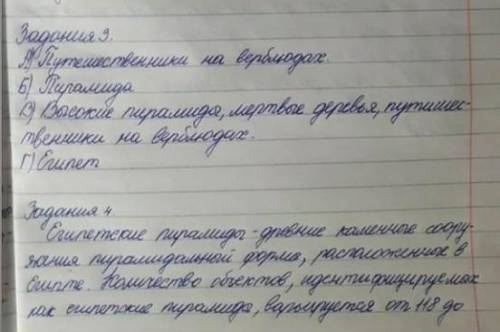 Задания 3.
А) Путешественники на верблюдах.
Б) Пирамида
В) Высокие пирамида, мертвые деревья, путишес-
твенники на верблюдах.
Г) Египет
Задания 4.
Египетские пирамиды - древние каменные соору-
жения пирамидальный форма, расположение в
Египте. Количество объектов, идентифицируемах
как египетские пирамида, варьируется от 118 до